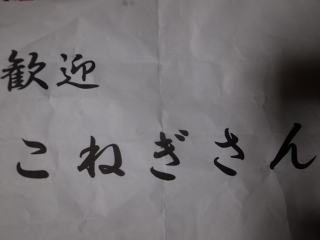 歓迎
こねぎさん